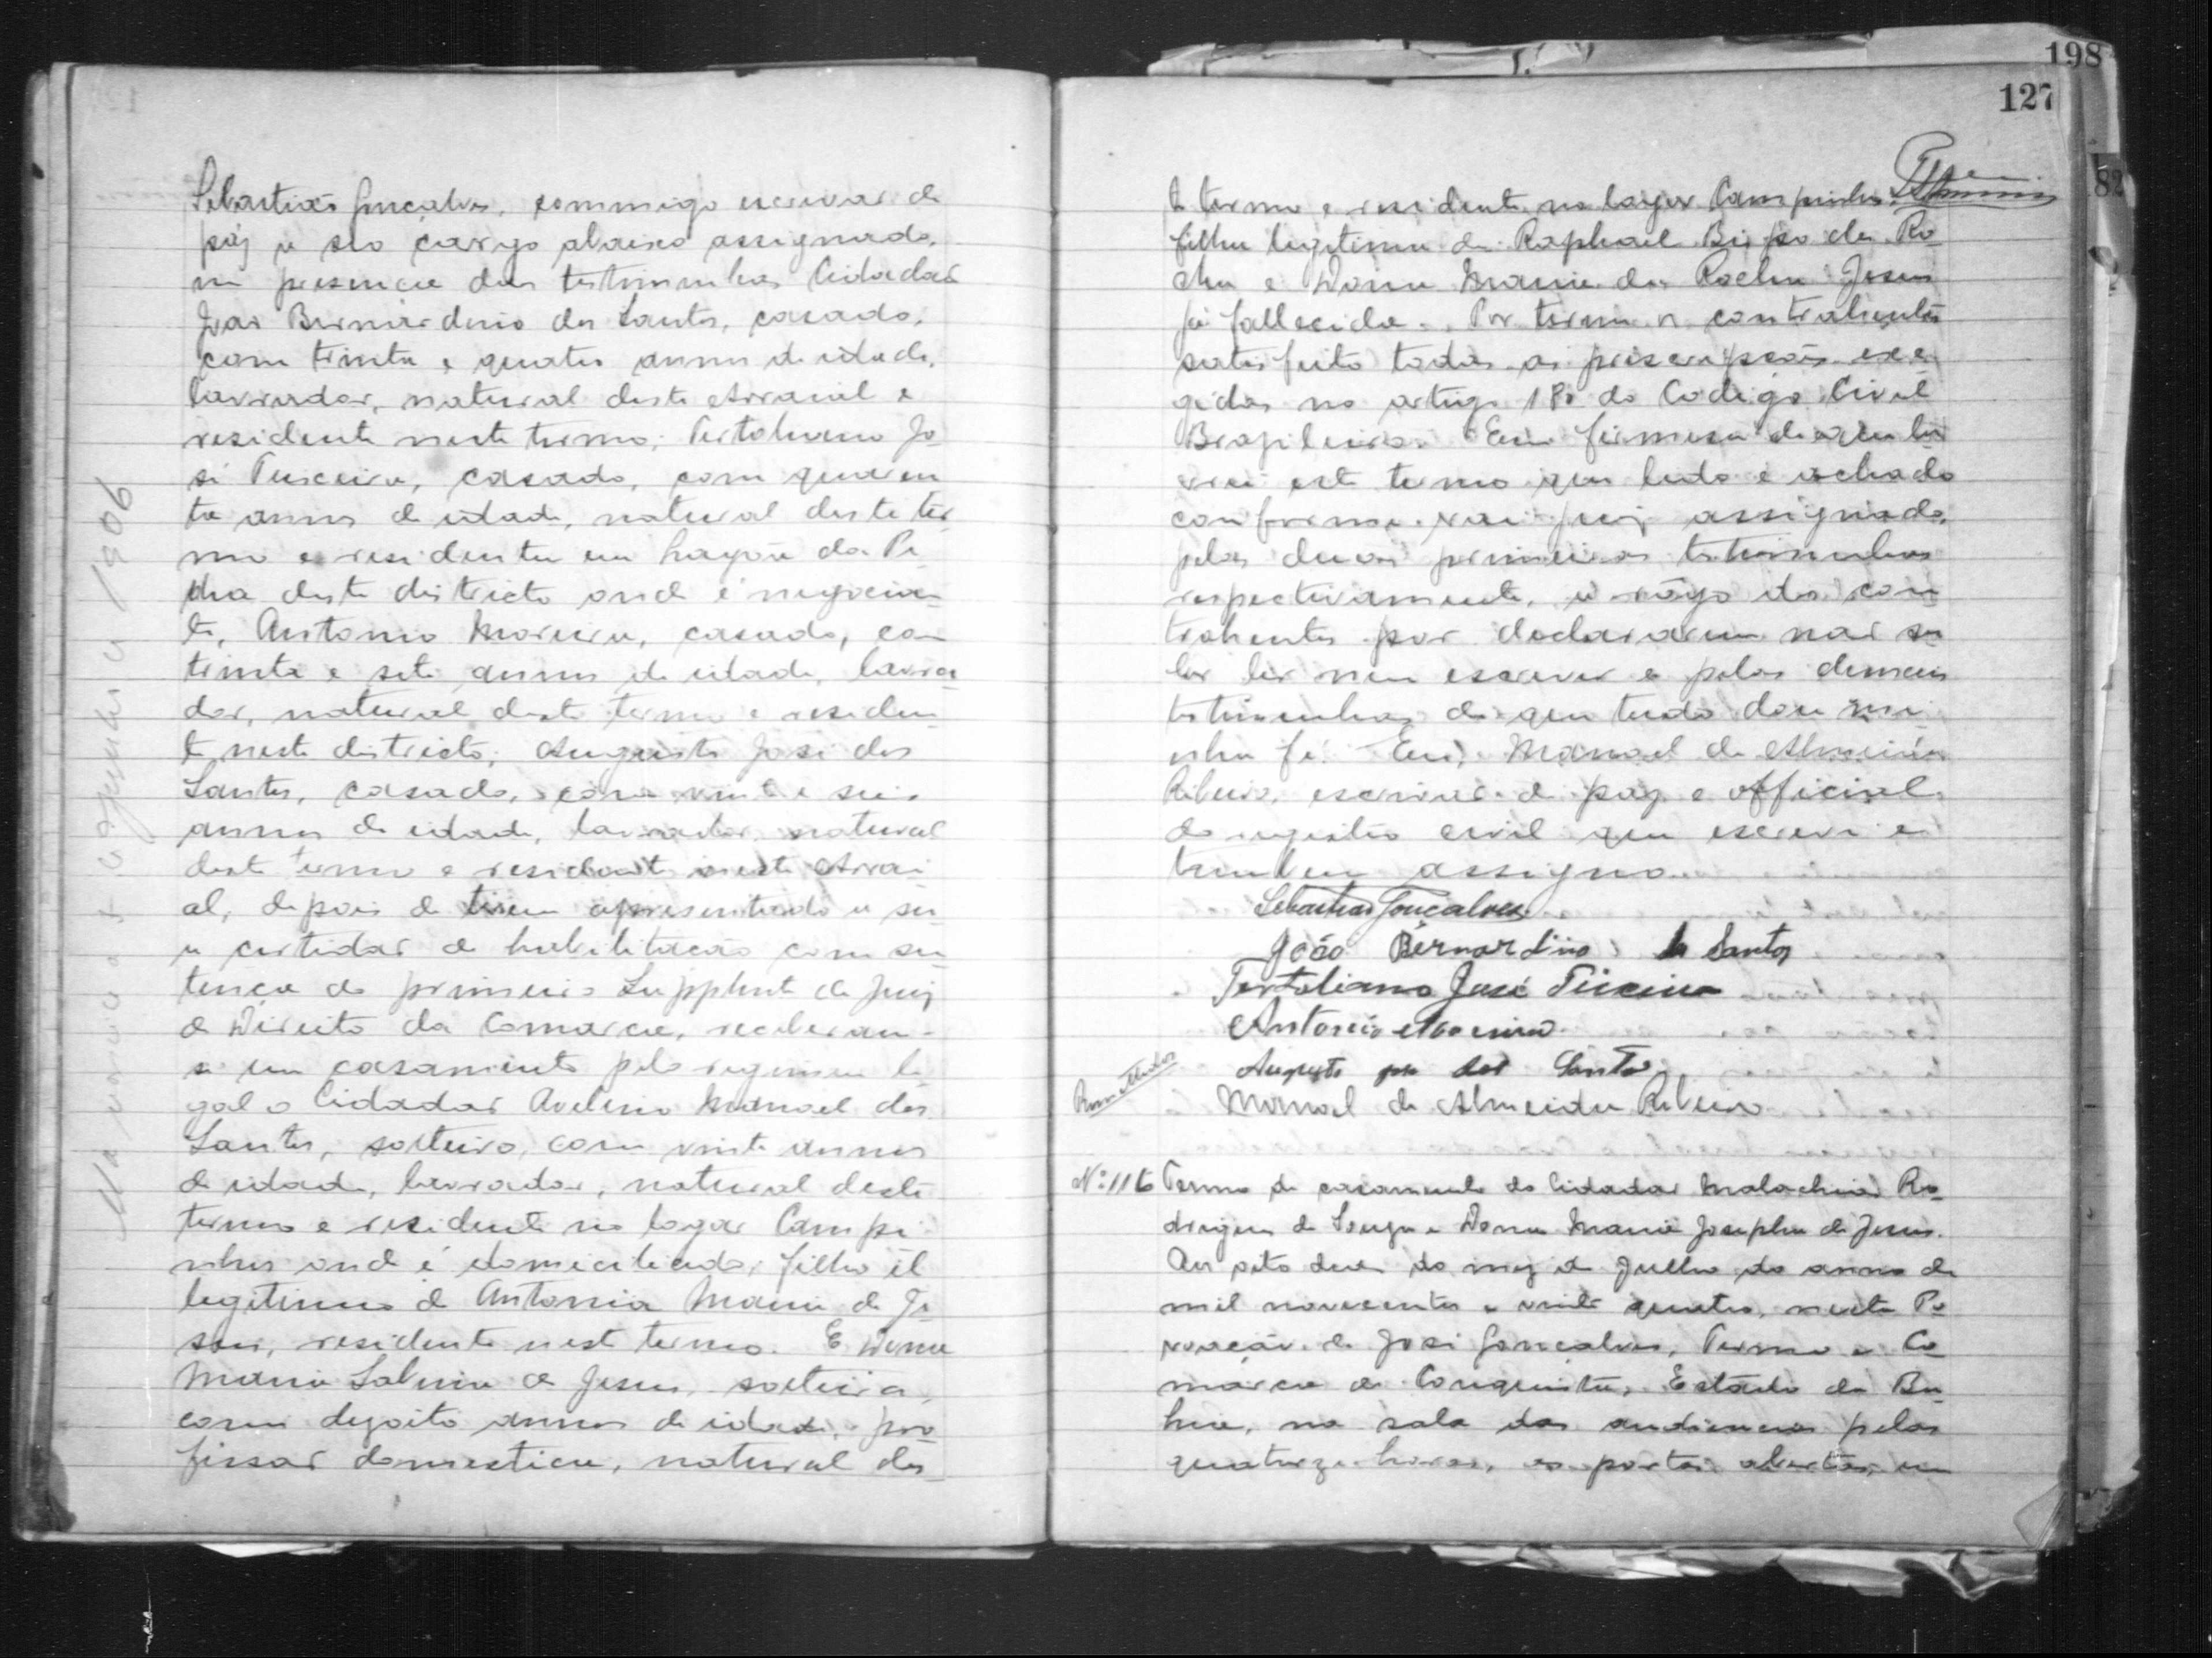 198
127
82
Sebastião Gonçalves, commigo escrivar de
paz a seo cargo abaixo assignado,
na presencia das testimunhas Cidadar
Joar Bernardino dos Santos, casado,
com trinta e quatro annos de idade,
lavrador, natural deste Arraial e
residente neste termo; Tertoliano Jo
sé Teixeira, casado, com quaren
ta annos de idade, natural deste ter
mo e residente em Lagoa da Pe
dra deste districto onde é negocian
te, Antonio Moreira, casado, com
trinta e sete annos de idade, lavra
dor, natural deste termo e residen
te neste districto; Augusto José dos
Santos, casado, com vinte e seis
annos de idade, lavrador, natural
deste termo e residente neste Arrai
al, depois de terem apresentado a su
a certidar de habilitacão com sen
tença do primeiro Supplente de Juiz
de Direito da Comarca, receberam-
se em casamento pelo regimen le
gal o Cidadar Avelino Manoel dos
Santos, solteiro, com vinte annos
de idade, lavrador, natural deste
termo e residente no logar Campi
nhos onde é domiciliado, filho il
legitimo de Antonia Maria de Je
sus, residente neste termo. E Dona
Maria Sabina de Jesus, solteira,
com dezoito annos de idade, pro
fissar domestica, natural des
1906
te termo e residente no logar Campinhos,
filha legitima de Raphael Bispo da Ro
cha e Dona Maria da Rocha Jesus
já fallecida. Por terem os contrahentes
satisfeito todas as prescripsões exe
gidas no artigo 180 do Codigo Civil
Brazileiro. Em firmesa de que la
vrei este termo que lido e achado
conforme vai assignado,
pelas duas primeiras testimunhas
respectivamente, a rôgo dos con
trahentes por declararem nar sa
ber ler nem escrever e pelas demais
testimunhas de que tudo dou mi
nha fé. Eu, Manoel de Almeida
Ribeiro, escrivar de paz e official
do registro civil que escrevi e
tambem assigno.
Sebastiao Gonçalves
João Bernardino dos Santos
Tertoliano José Teixeira
Antonio Moreira
Augusto José dos Santos
Manoel de Almeida Ribeiro
Nº 116 Termo de casamento do Cidadar Malachias Ro
drigues de Souza e Dona Maria Josepha de Jesus.
Aos oito dias do mez de Julho do anno de
mil novecentos e vinte quatro, nesta Po
voação de José Gonçalves, Termo e Co
marca de Conquista, Estado da Ba
hia, na sala das audiencias pelas
quatorze horas, as portas abertas, em